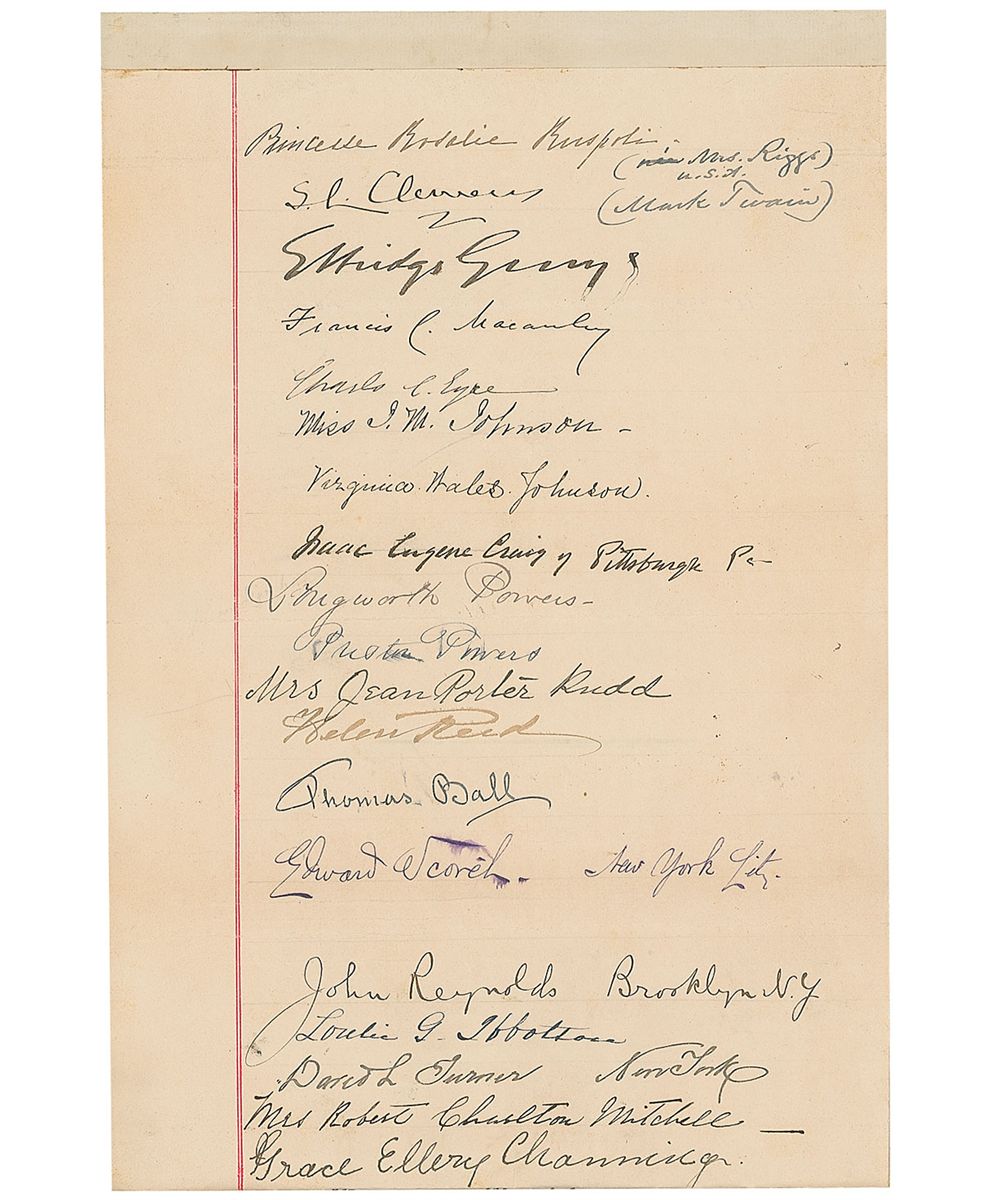 Princesse Rosalie Ruspoli -
(née Mrs. Riggs)
U.S.A.
S. L. Clemens (Mark Twain)
Elbridge Gerry
Francis C. Macauley
Charles C. Eyre
Miss I. M. Johnson -
Virginia Wales Johnson.
Isaac Eugene Craig of Pittsburgh Pa
Longworth Powers -
Preston Powers
Mrs Jean Porter Rudd
Helen Reed
Thomas Ball
Edward Scovel. New York City.
John Reynolds Brooklyn N.Y
Loulie G. Ibbotson
David L Turner New York
Mrs Robert Charlton Mitchell —
Grace Ellery Channing.